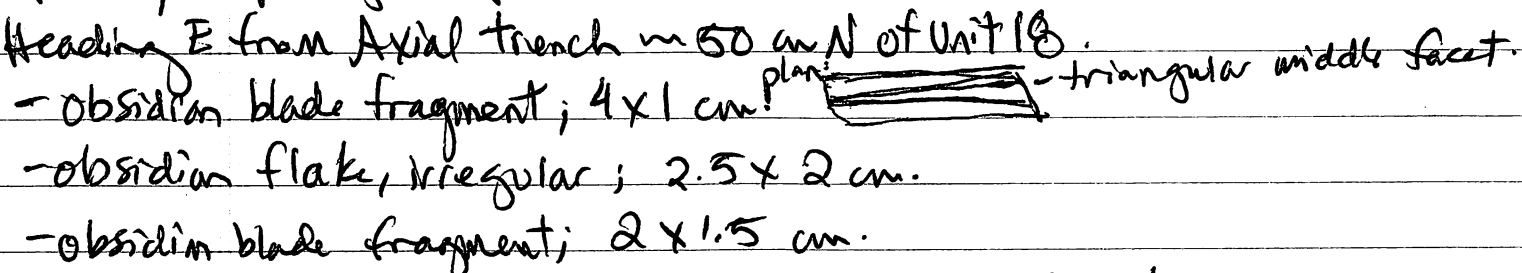 Heading E from Axial trench ~ 50 cm N of Unit 18.
- obsidian blade fragment; 4 x 1 cm. plan: - triangular middle facet.
- obsidian flake, irregular; 2.5 x 2 cm.
- obsidian blade fragment; 2 x 1.5 cm.